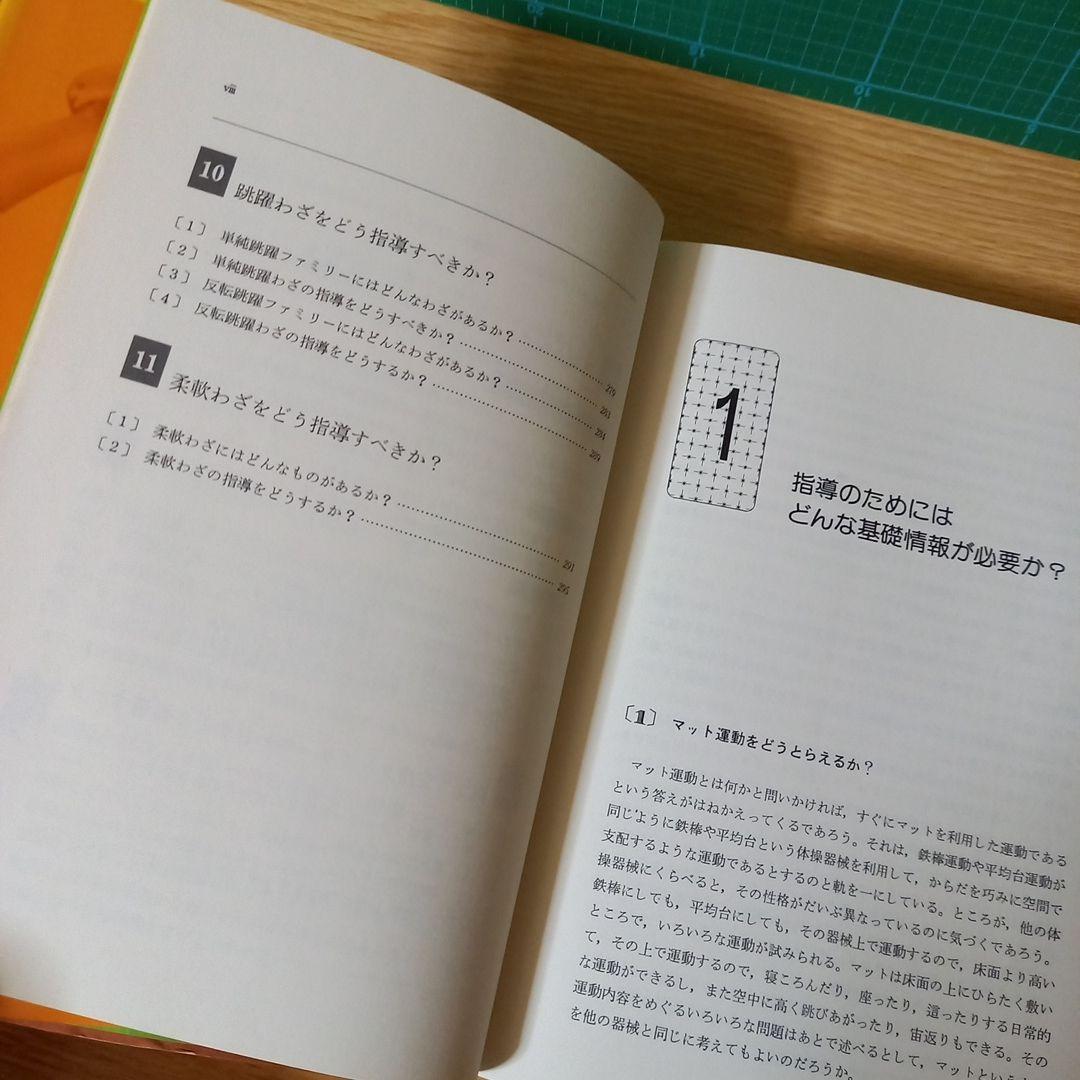 viii
10 跳躍わざをどう指導すべきか？
〔1〕 単純跳躍ファミリーにはどんなわざがあるか？ 279
〔2〕 単純跳躍わざの指導をどうすべきか？ 283
〔3〕 反転跳躍ファミリーにはどんなわざがあるか？ 284
〔4〕 反転跳躍わざの指導をどうするか？ 289
11 柔軟わざをどう指導すべきか？
〔1〕 柔軟わざにはどんなものがあるか？ 291
〔2〕 柔軟わざの指導をどうするか？ 295
1
指導のためには
どんな基礎情報が必要か？
〔1〕 マット運動をどうとらえるか？
マット運動とは何かと問いかければ，すぐにマットを利用した運動である
という答えがはねかえってくるであろう。それは，鉄棒運動や平均台運動が
同じように鉄棒や平均台という体操器械を利用して，からだを巧みに空間で
支配するような運動であるとするのと軌を一にしている。ところが，他の体
操器械にくらべると，その性格がだいぶ異なっているのに気づくであろう。
鉄棒にしても，平均台にしても，その器械上で運動するので，床面より高い
ところで，いろいろな運動が試みられる。マットは床面の上にひらたく敷い
て，その上で運動するので，寝ころんだり，座ったり，這ったりする日常的
な運動ができるし，また空中に高く跳びあがったり，宙返りもできる。その
運動内容をめぐるいろいろな問題はあとで述べるとして，マットという
を他の器械と同じに考えてもよいのだろうか。
10